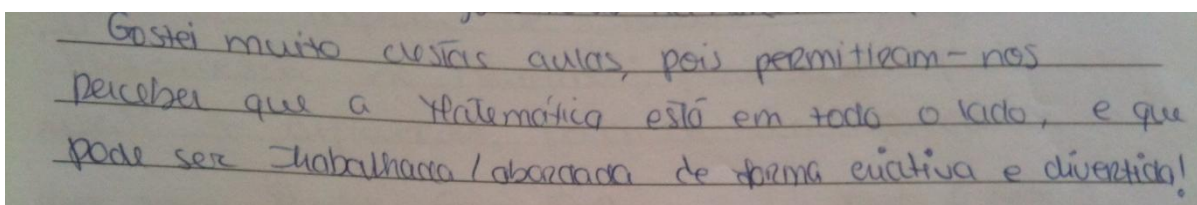 Gostei muito destas aulas, pois permitiram-nos
perceber que a Matemática está em todo o lado, e que
pode ser trabalhada/abordada de forma criativa e divertida!